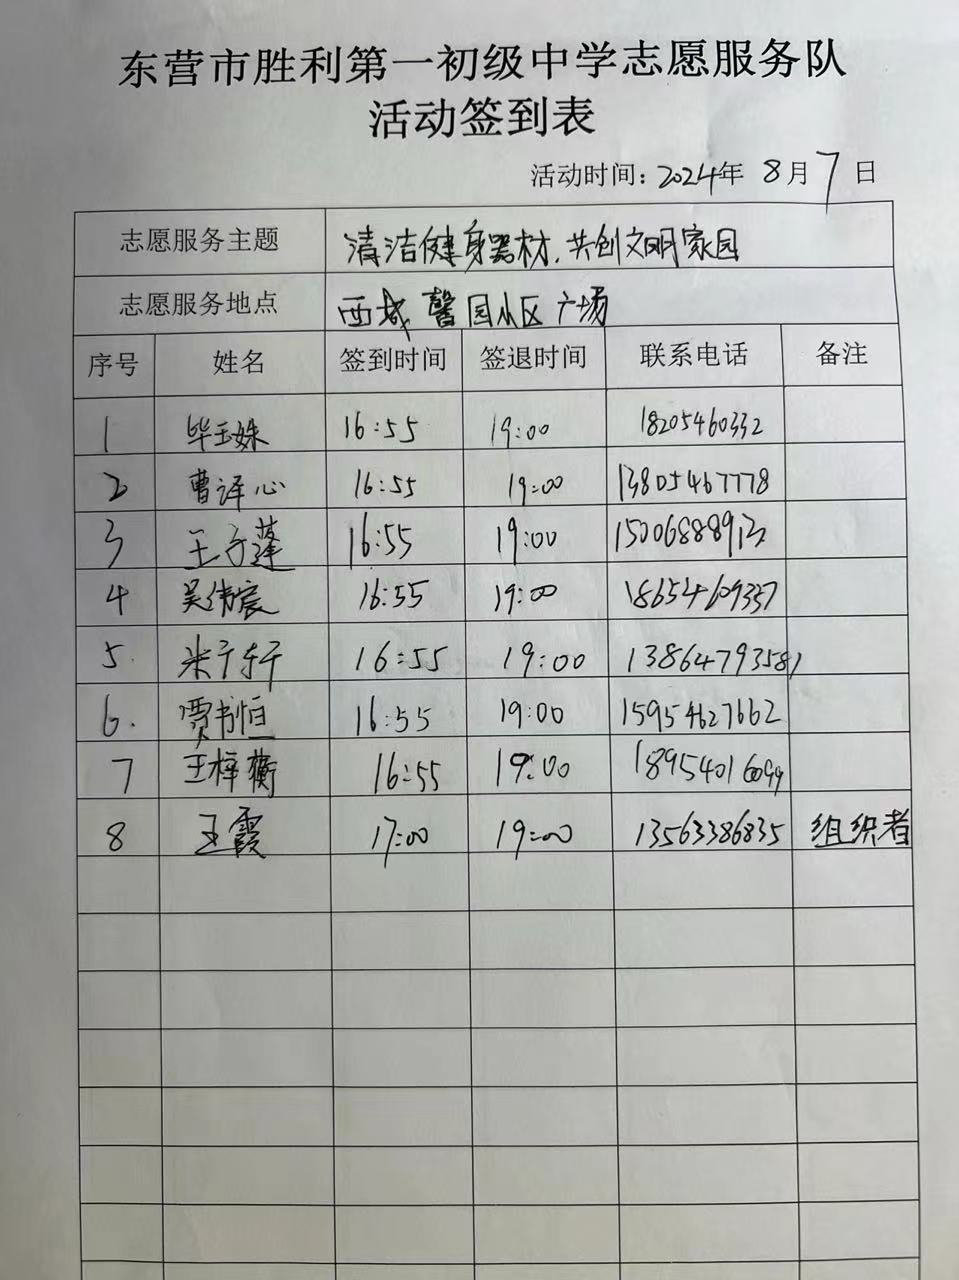 东营市胜利第一初级中学志愿服务队
活动签到表
活动时间：2024年 8月7日
志愿服务主题 清洁健身器材，共创文明家园
志愿服务地点 西城馨园小区广场
序号 姓名 签到时间 签退时间 联系电话 备注
1 毕玉姝 16:55 19:00 18205460332
2 曹译心 16:55 19:00 13805467778
3 王子蓬 16:55 19:00
4 吴伟宸 16:55 19:00 18654609337
5. 米于轩 16:55 19:00 13864793581
6. 贾书恒 16:55 19:00 15954627662
7 王梓蘅 16:55 19:00 18954016099
8 王霞 17:00 19:00 13563386835 组织者